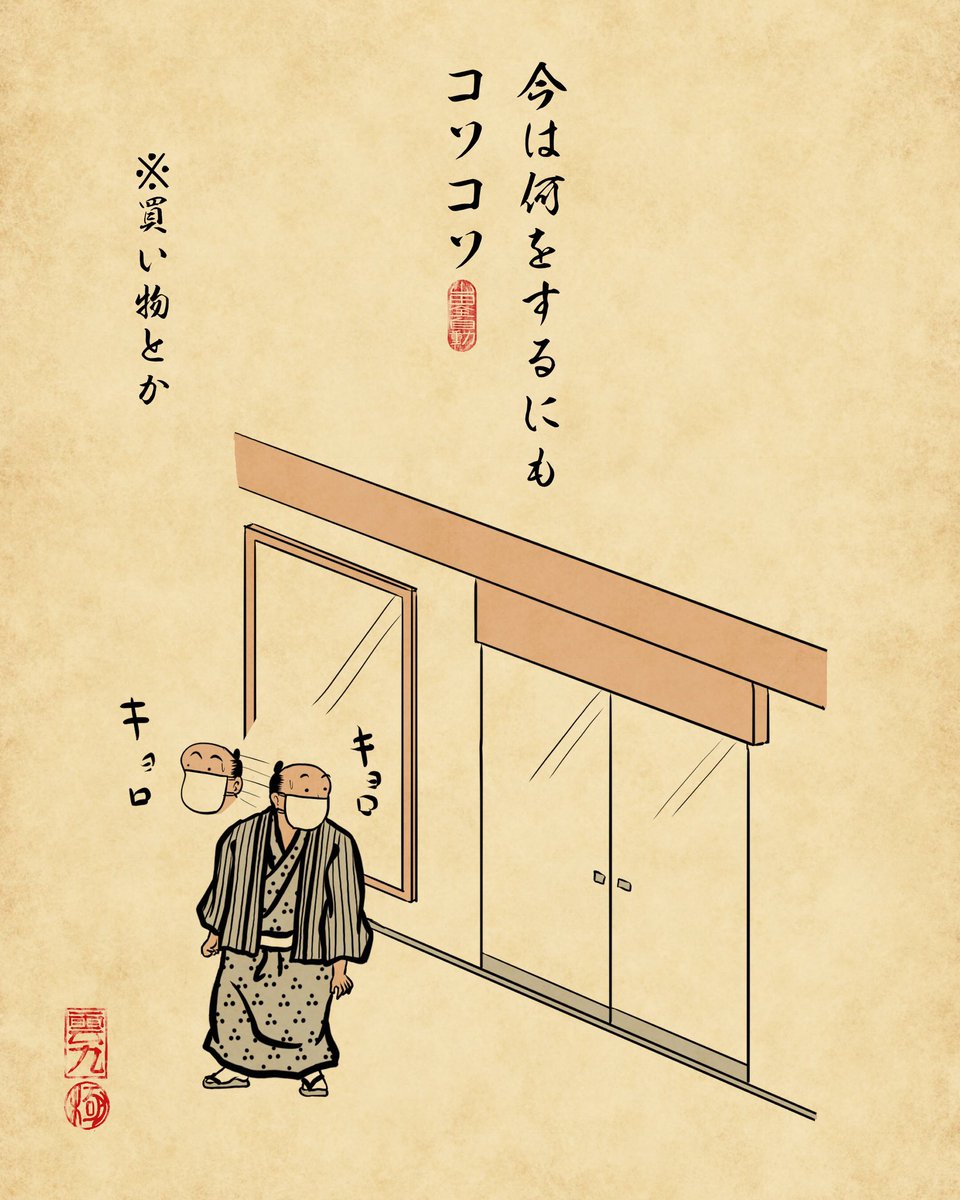 今は何をするにも
コソコソ
※買い物とか
キョロ
キョロ